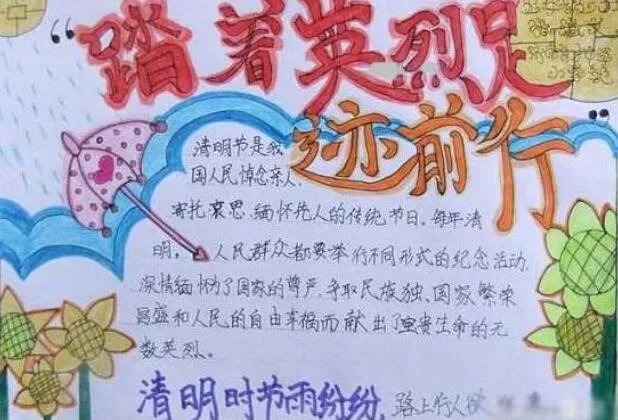 “踏着英烈足
迹前行
清明节是我
国人民悼念亲人、
寄托哀思、缅怀先人的传统节日。每年清
明，人民群众都要举行不同形式的纪念活动，
深情缅怀为了国家的尊严、争取民族独、国家繁荣
昌盛和人民的自由幸福而献出了宝贵生命的无
数英烈。
清明时节雨纷纷，路上行人欲